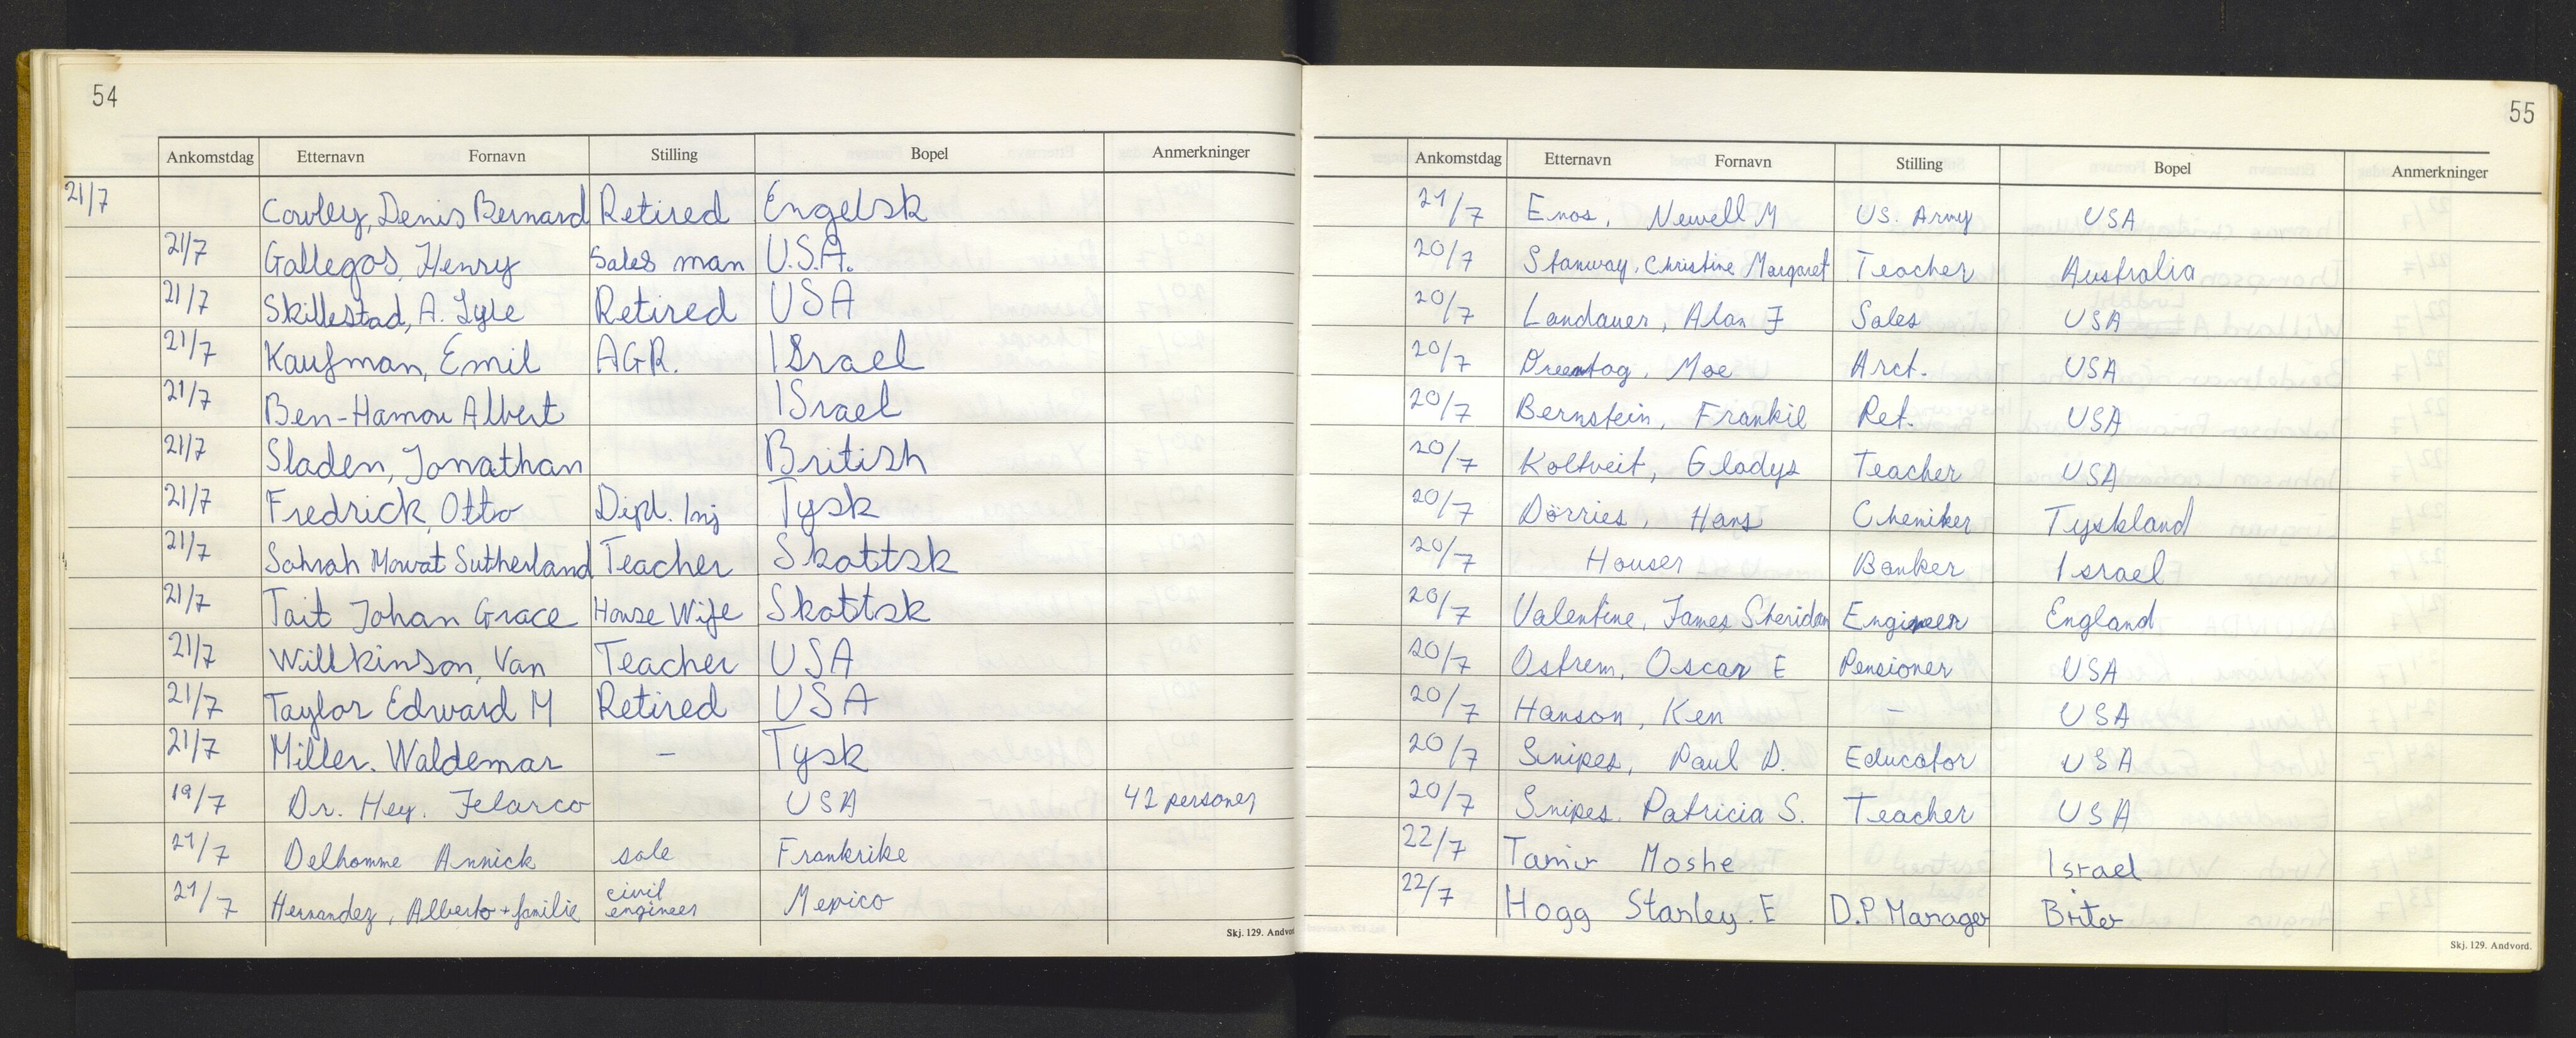 54
Ankomstdag Etternavn Fornavn Stilling Bopel Anmerkninger
21/7 Cowley, Denis Bernard Retired Engelsk
21/7 Gallegos, Henry Sales man U.S.A.
21/7 Skillestad, A. Lyle Retired USA
21/7 Kaufman, Emil AGR. ISrael
21/7 Ben-Hamou Albert ISrael
21/7 Sladen, Jonathan British
21/7 Fredrick, Otto Dipl. Inj Tysk
21/7 Sahrah Mowat Sutherland Teacher Skottsk
21/7 Tait Johan Grace House Wife Skottsk
21/7 Willkinson, Van Teacher USA
21/7 Taylor Edward M Retired USA
21/7 Miller. Waldemar – Tysk
19/7 Dr. Hey. Jelarco USA 42 personer
21/7 Delhomme Annick sale Frankrike
21/7 Hernandez, Alberto + familie civil engineer Mexico
Skj. 129. Andvord
55
Ankomstdag Etternavn Fornavn Stilling Bopel Anmerkninger
21/7 Enos, Newell M US. Army USA
20/7 Stanway, Christine Margaret Teacher Australia
20/7 Landauer, Alan J Sales USA
20/7 Moe Arct. USA
20/7 Bernstein, Frankil Ret. USA
20/7 Koltveit, Gladys Teacher USA
20/7 Dörries, Hans Cheniker Tyskland
20/7 Houser Banker Israel
20/7 Valentine, James Sheridan Engineer England
20/7 Ostrem, Oscar E Pensioner USA
20/7 Hanson, Ken – USA
20/7 Snipes, Paul D. Educator USA
20/7 Snipes. Patricia S. Teacher USA
22/7 Tamir Moshe Israel
22/7 Hogg Stanley. E D.P Manager Briter
Skj. 129. Andvord.